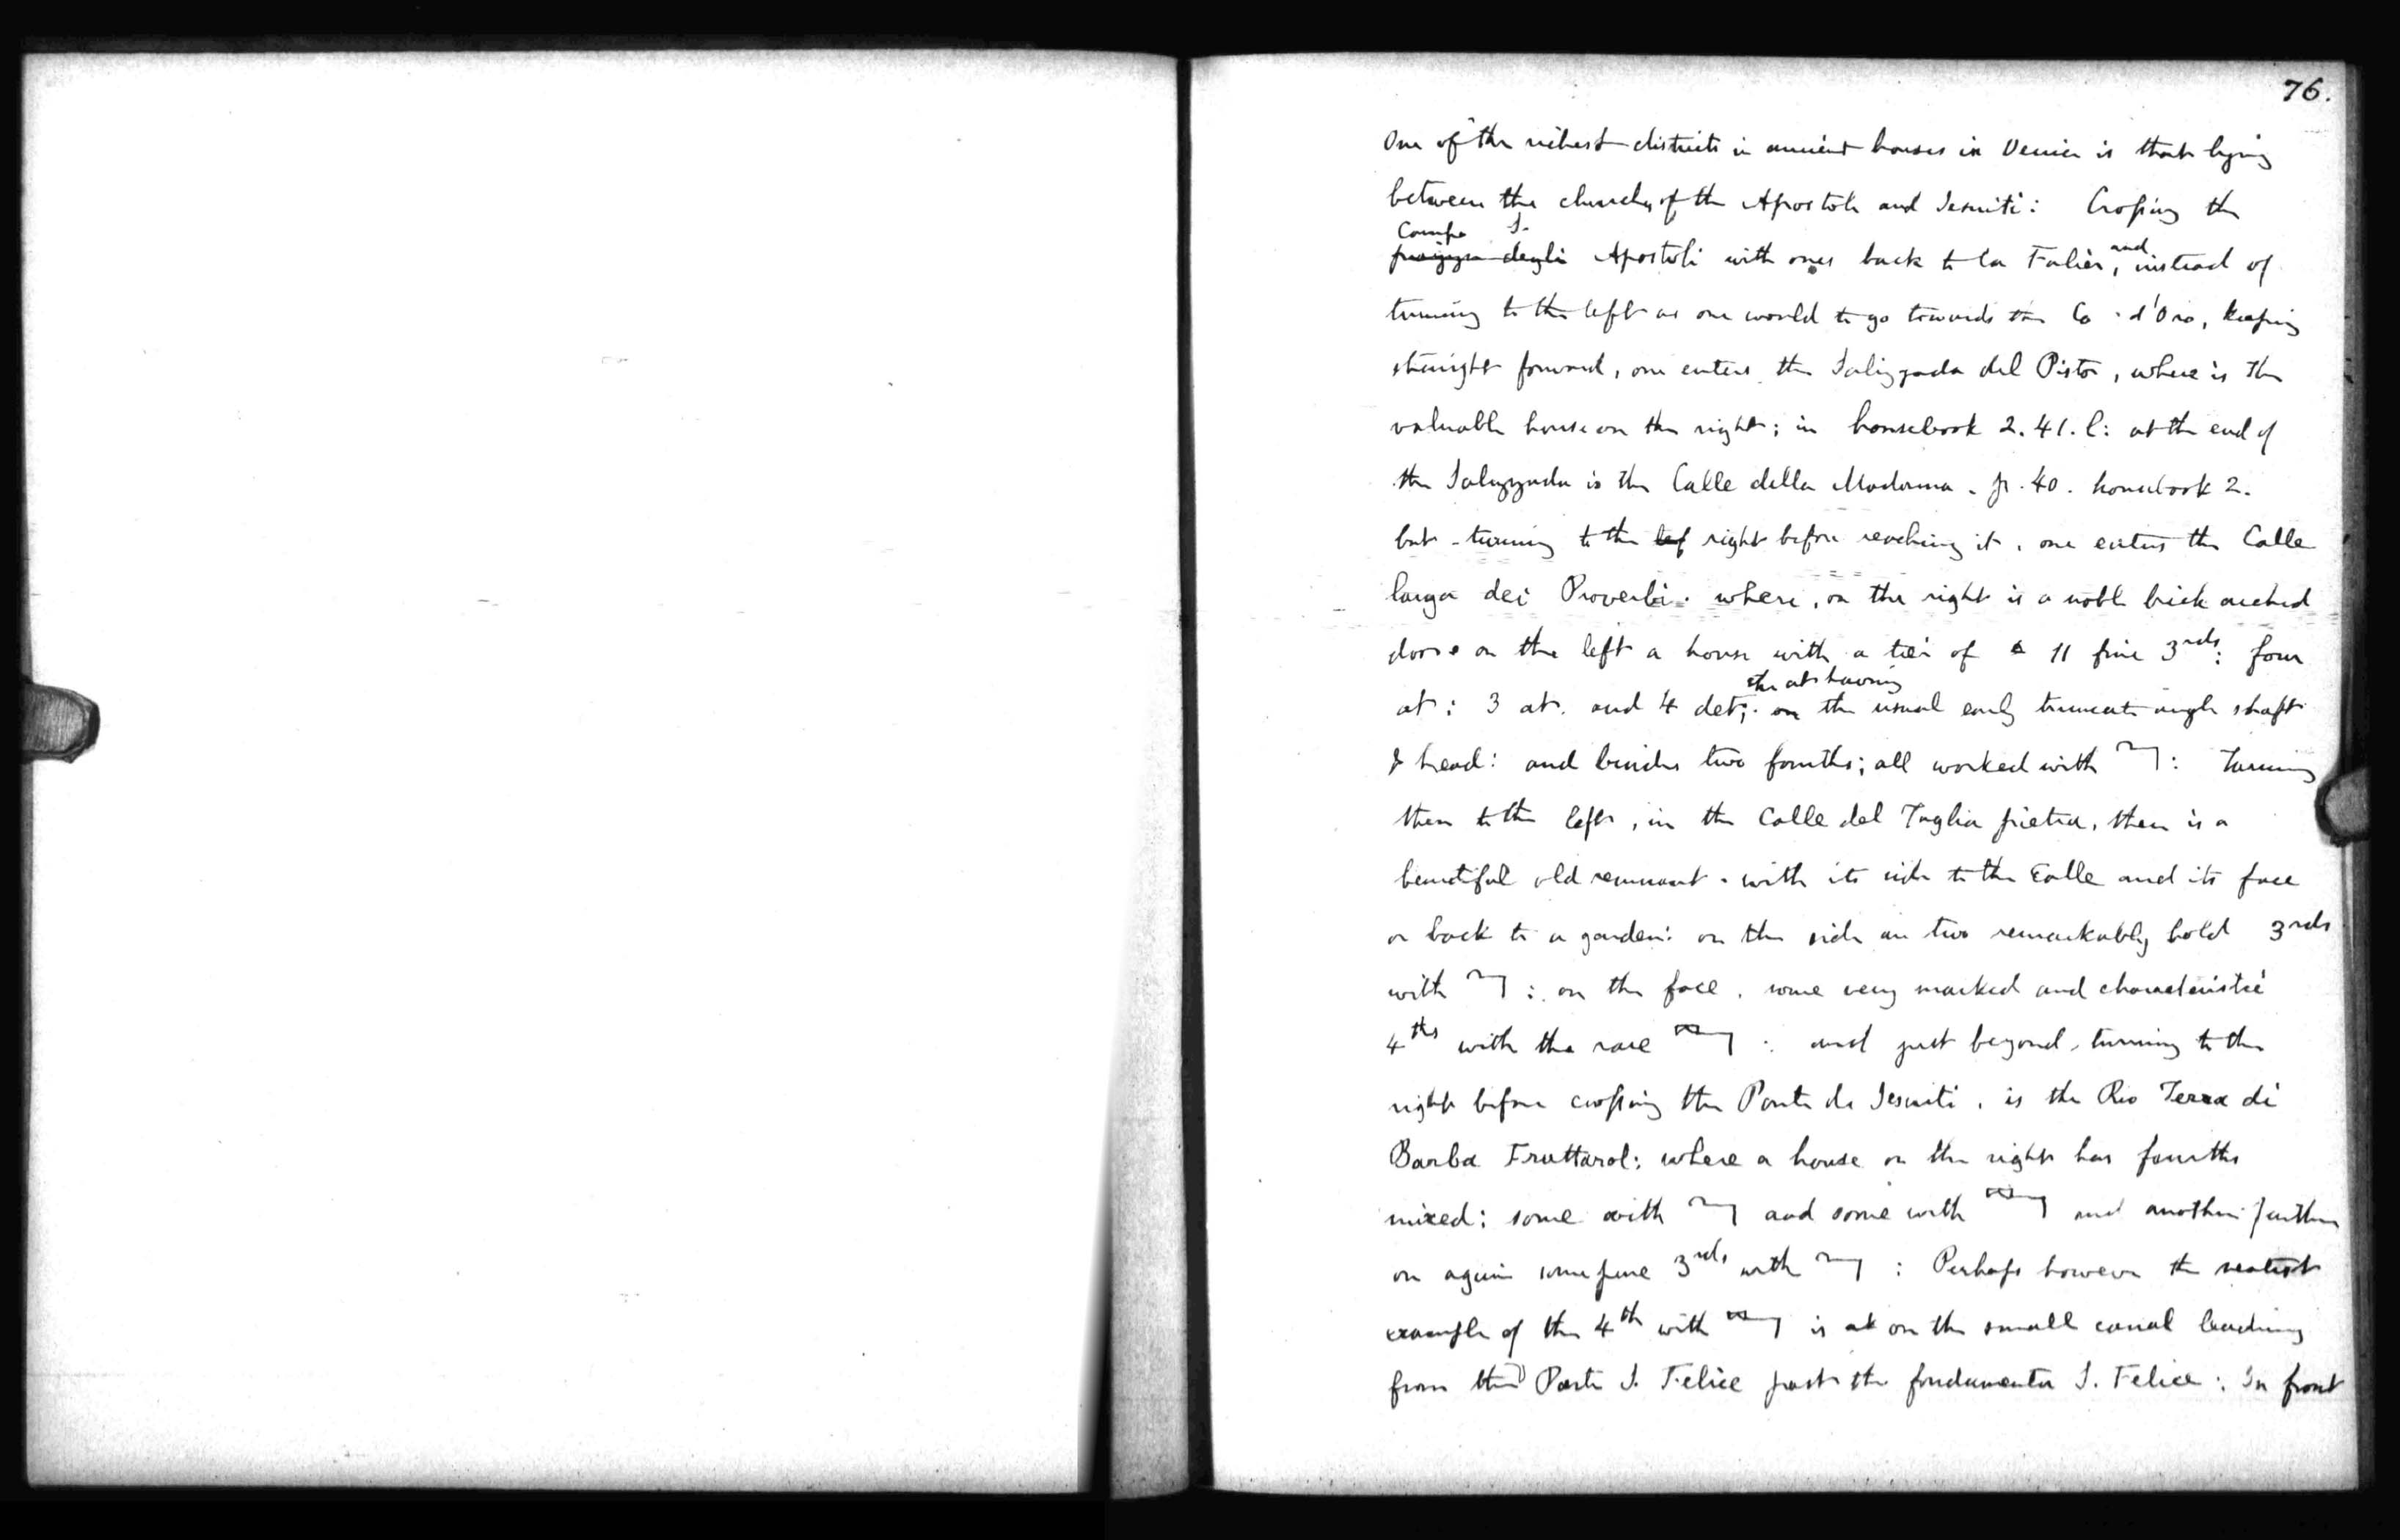 76.
One of the richest districts in ancient houses in Venice is that lying
between the churches of the Apostoli and Jesuiti: Crossing the
Campo S.
piazza degli Apostoli with ones back to Ca Falier, and instead of
turning to the left as one would to go towards the Ca d'Oro, keeping
straight forward, one enters the Salizzada del Pistor, where is the
valuable house on the right; in housebook 2. 41. l: at the end of
the Salizzada is the Calle della Madonna. p. 40. housebook 2.
but turning to the lef right before reaching it, one enters the Calle
larga dei Proverbi. where, on the right is a noble brick arched
door on the left a house with a tier of 11 fine 3rds: four
the at having
at: 3 at. and 4 det; on the usual early truncate angle shaft
& head: and besides two fourths; all worked with : Turning
then to the left, in the Calle del Taglia pietra, there is a
beautiful old remnant. with its side to the Calle and its face
or back to a garden: on the side are two remarkably bold 3rds
with : on the face, some very marked and characteristic
4ths with the rare : and just beyond, turning to the
right before crossing the Ponte de Jesuiti, is the Rio Terra di
Barba Fruttarol: where a house on the right has fourths
mixed: some with and some with and another further
on again some fine 3rds with : Perhaps however the neatest
example of the 4th with is at on the small canal leading
from the Ponte S. Felice past the fondamenta S. Felice: In front